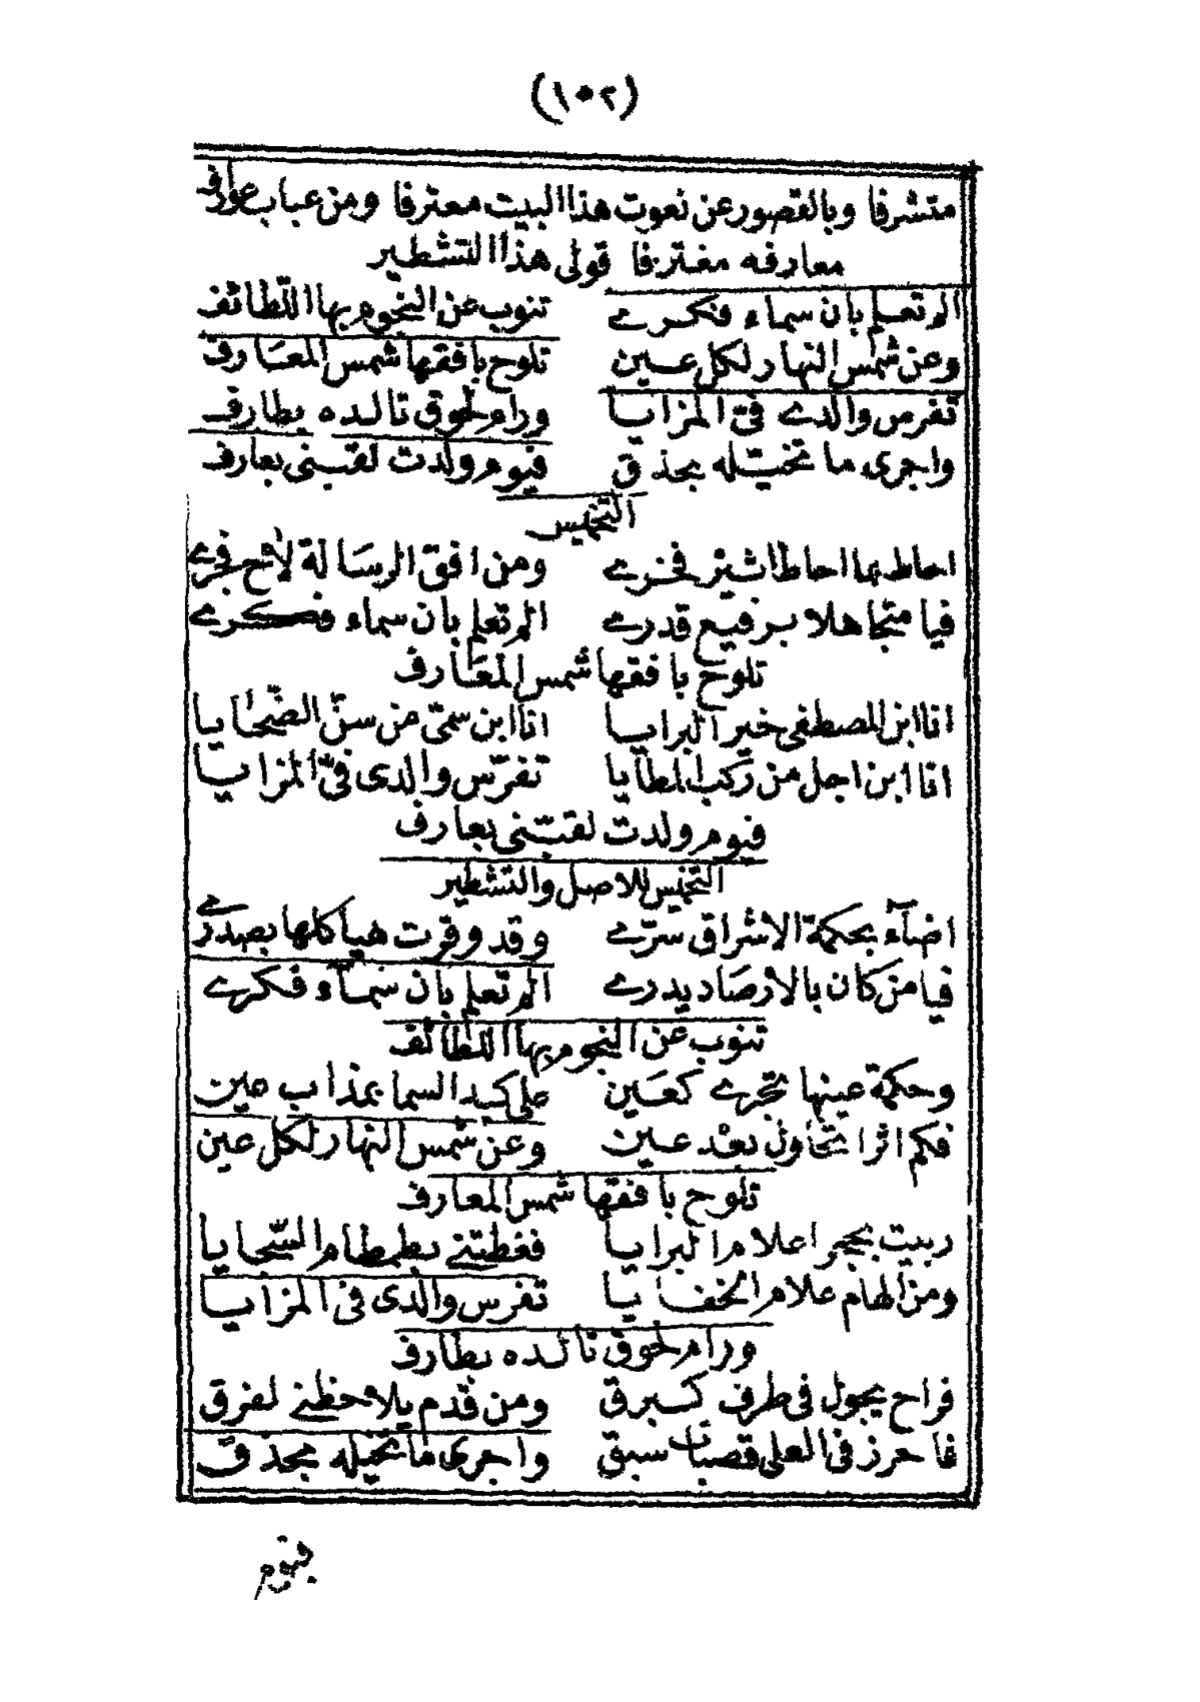 (١٠٢)
متشرفا وبالقصور عن نعوت هذا البيت معترفا ومن عباب عوارف
معارفه مغترفا قولى هذا التشطير
الم تعلم بان سماء فكرے تنوب عن النجوم بها اللطائف
وعن شمس النهار لكل عين تلوح بافقها شمس المعارف
تفرس والدے فىّ المزايا ورام لحوق تالده بطارف
واجرى ما تخيّله بحذق فيوم ولدت لقبنى بعارف
التخميس
احاط بما احاط اثير فخرے ومن افق الرسالة لاح فجرے
فيا متجاهلا برفيع قدرے الم تعلم بان سماء فكرے
تلوح بافقها شمس المعارف
انا ابن المصطفى خير البرايا انا ابن سمىّ من سنّ الضحايا
انا ابن اجل من ركب المطايا تفرّس والدى فىّ المزايا
فيوم ولدت لقبّنى بعارف
التخميس للاصل والتشطير
اضآء بحكمة الاشراق سرّے وقد وقرت هياكلها بصدرے
فيا من كان بالارصاد يدرے الم تعلم بان سمآء فكرے
تنوب عن النجوم بها اللطائف
وحكمة عينها تجرے كعين على كبد السما بمذاب عين
فكم اثرا تحاول بعد عين وعن شمس النهار لكل عين
تلوح بافقها شمس المعارف
ربيت بحجر اعلام البرايا فغطتنے بطمطام السّجايا
ومن الهام علام الخفايا تفرس والدى فى المزايا
ورام لحوق تالده بطارف
فراح يجول فى طرف كبرق ومن قدم يلاحظنے لفرق
فاحرز فى العلى قصبات سبق واجرى ما تخيله بحذق
فيوم